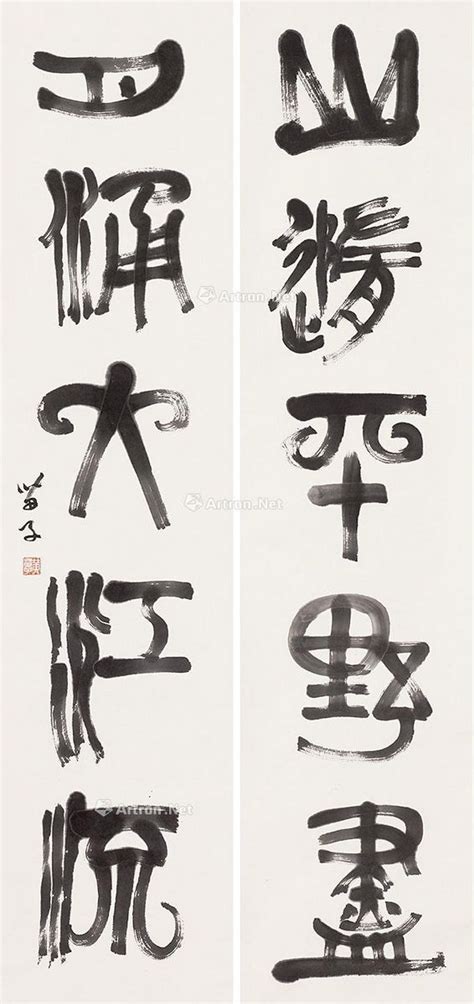 山隨平野盡
月涌大江流
苗子
Artron.Net
Artron.Net
Artron.Net